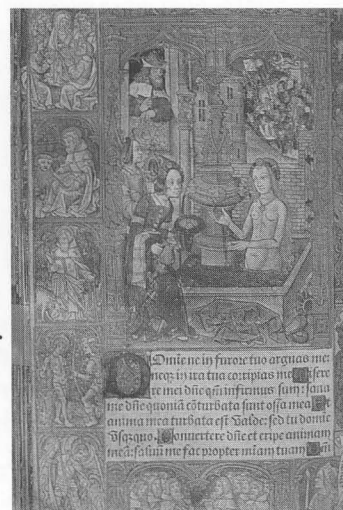 Domīe ne in furore tuo arguas me:
neqʒ in ira tua corripias me Misere
re mei dn̄e qm̄ infirmus sum: sana
me dn̄e quoniā cōturbata sunt ossa mea Et
anima mea turbata est valde: sed tu domīe
vsqʒquo. Conuertere dn̄e et eripe animam
meā: saluū me fac propter mīam tuam